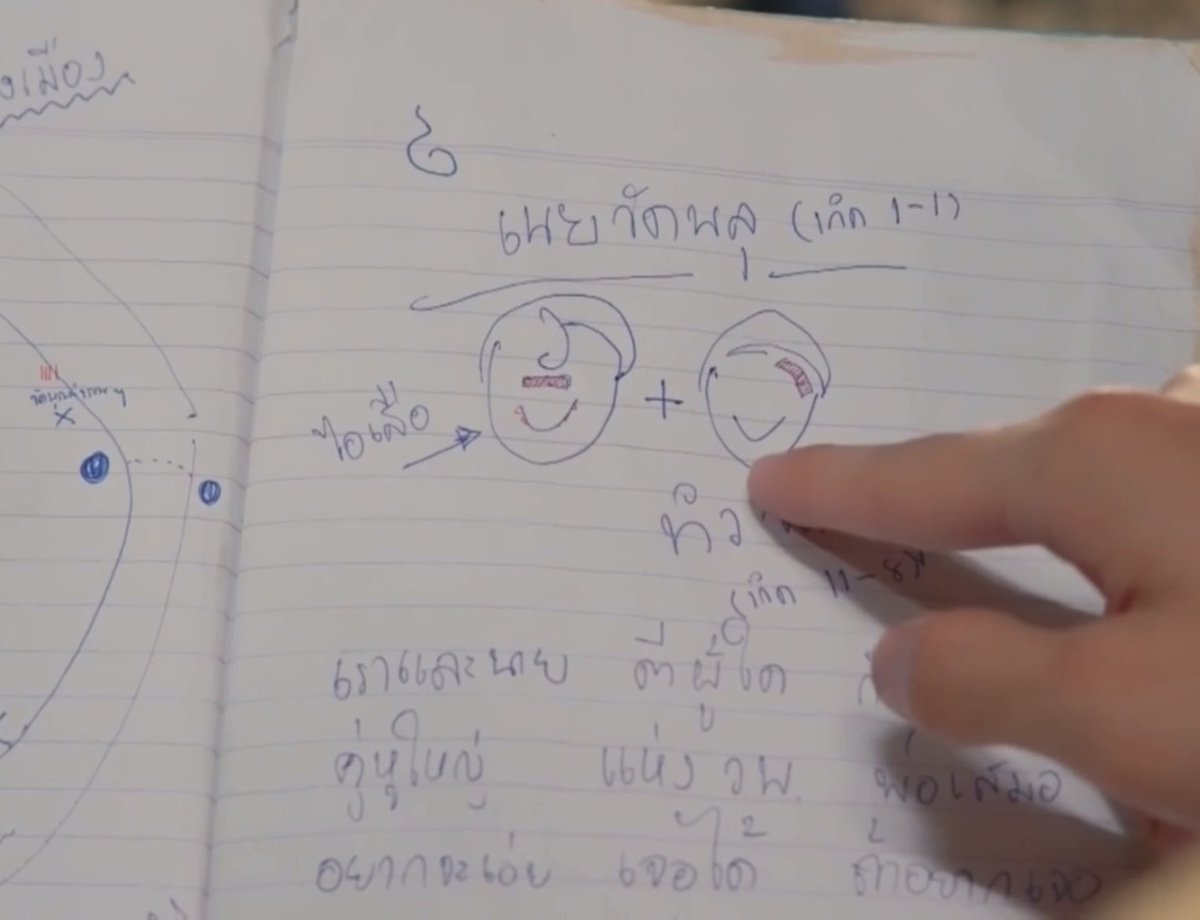 งเมือง
เนย วัดพลุ (เกิด 1-1)
ไอเสือ
+
หัว
(เกิด 11-8)
เราและนาย ตีผู้ใด
คู่หูใหญ่ แห่ง วพ. พ่อเสมอ
อยากจะเอ่ย เจอได้ ถ้าอยากเจอ